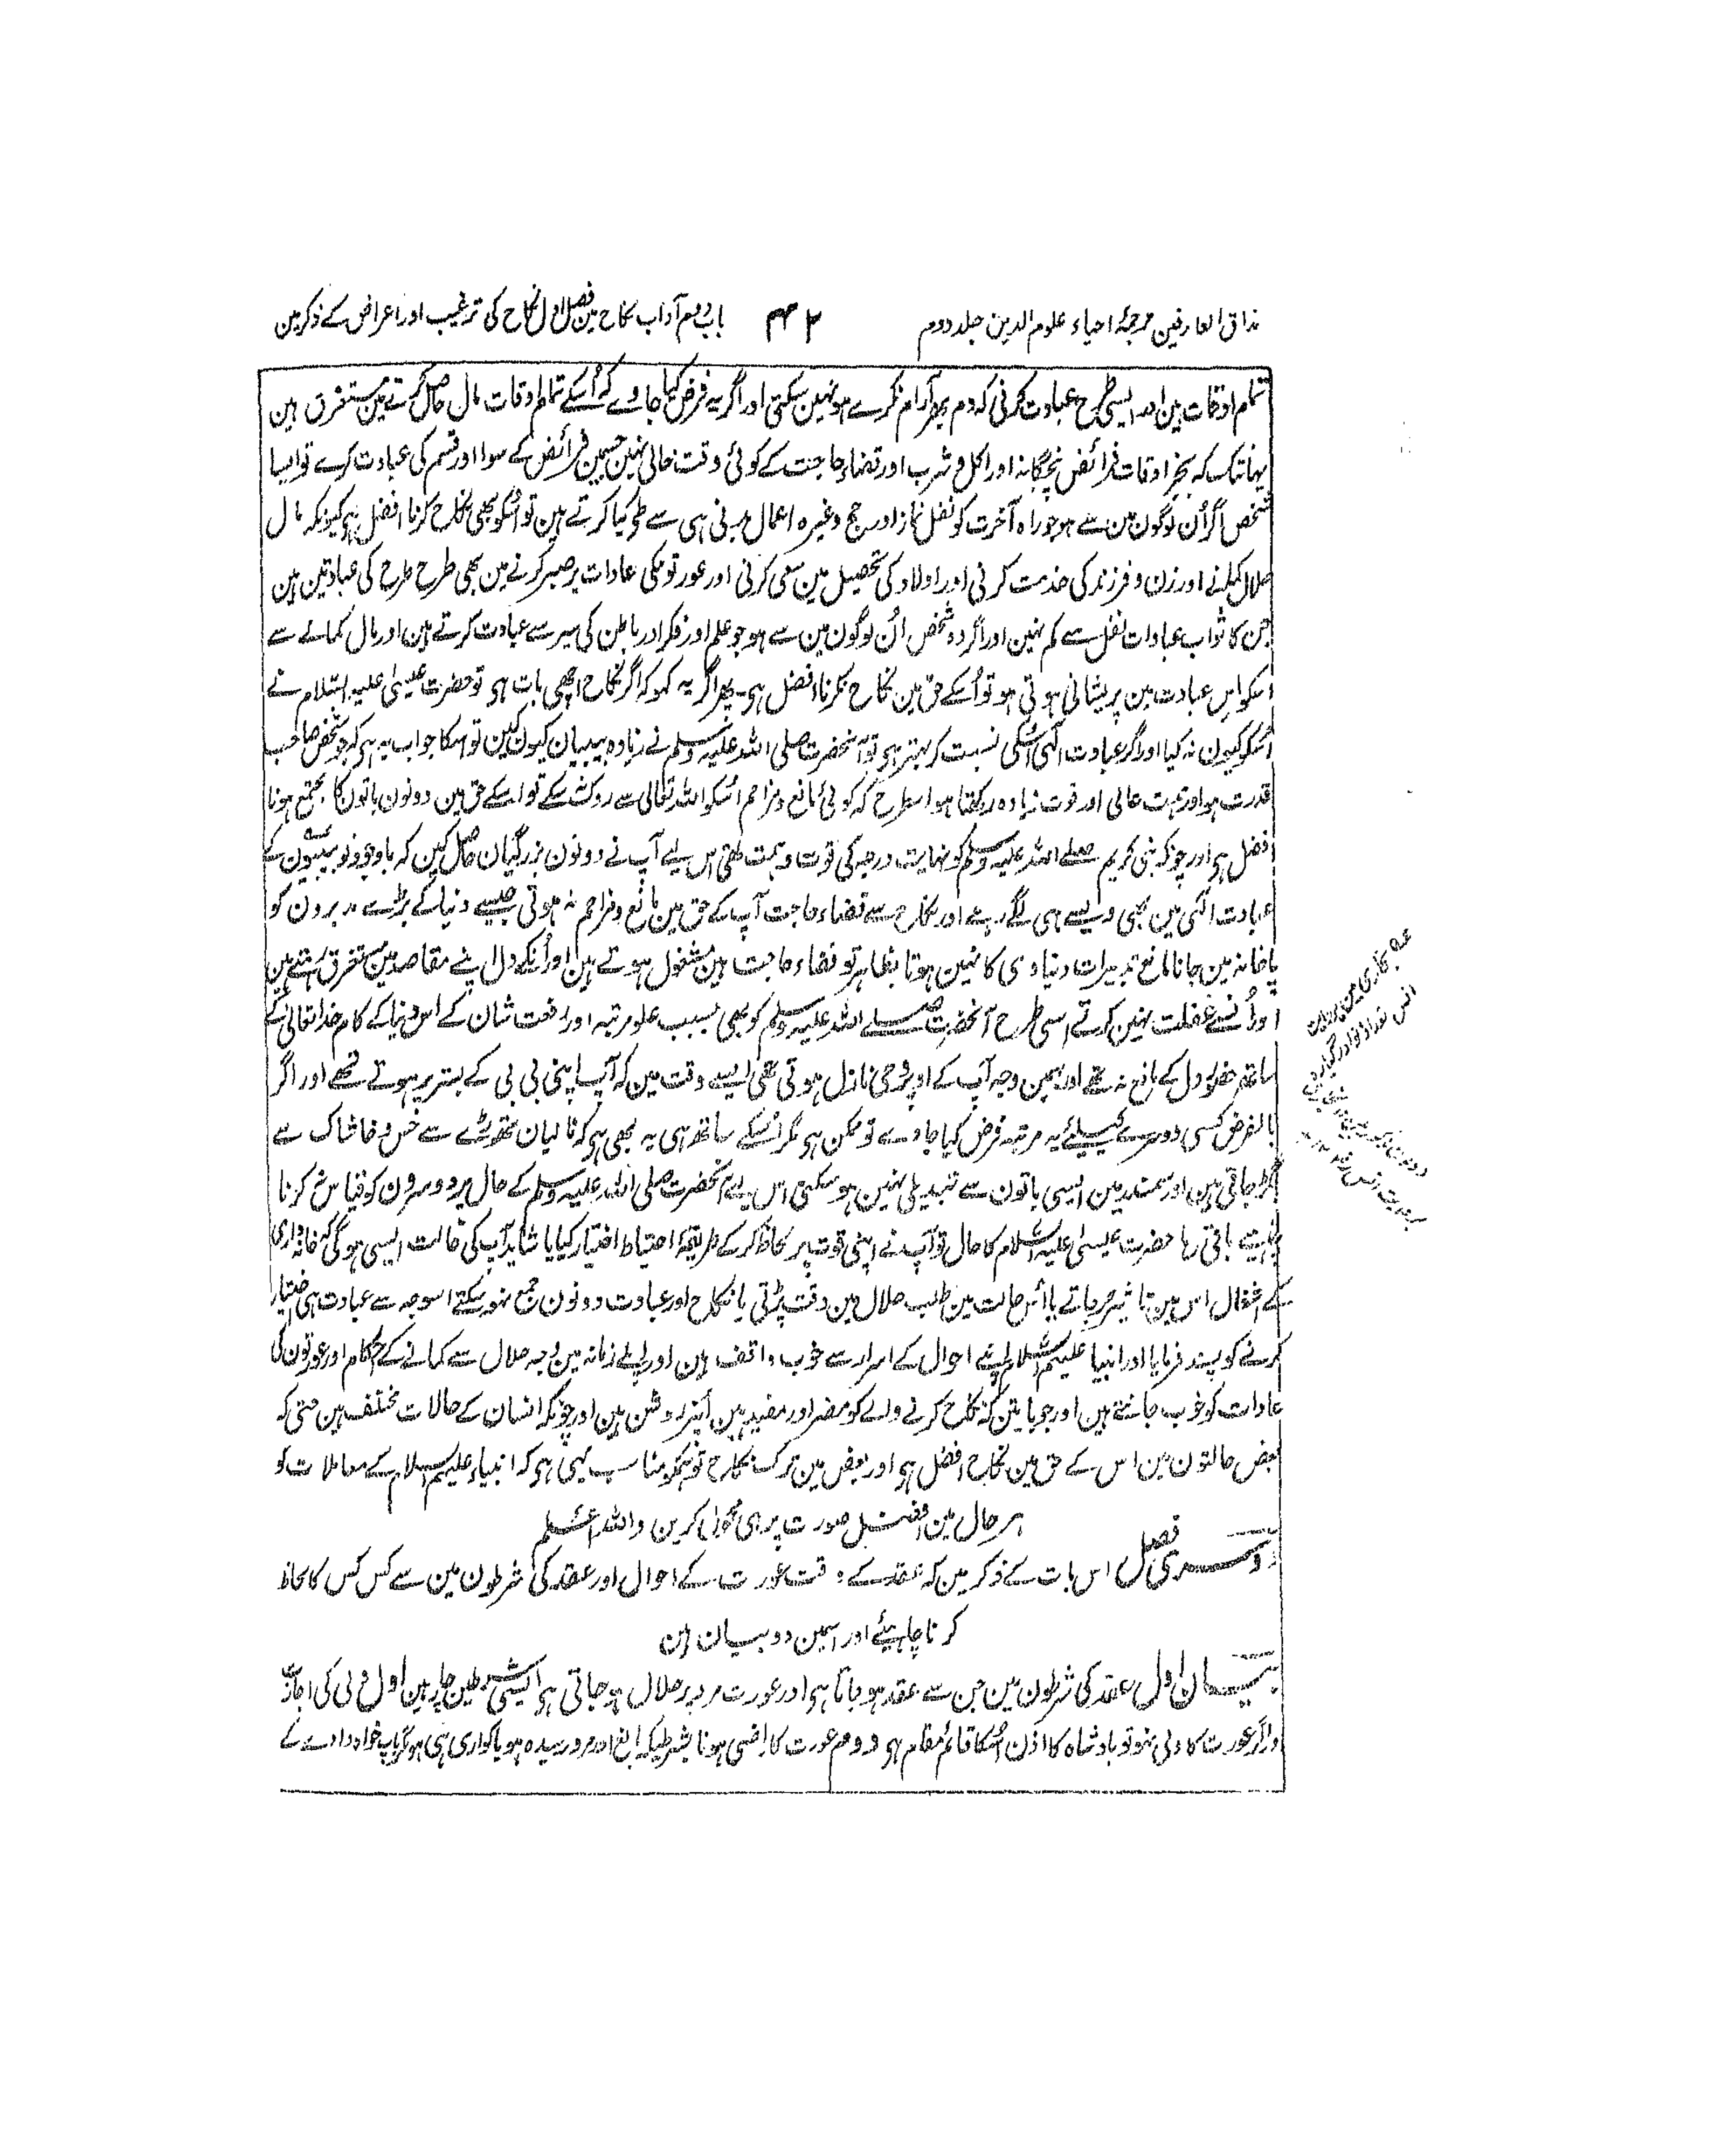 مذاق العارفین ترجمۂ احیاء علوم الدین جلد دوم
باب دوم آداب نکاح مین فصل اول نکاح کی ترغیب اور اعراض کے ذکر مین
تمام اوقات مین اور ایسی طرح عبادت کرنی کہ دم بھر آرام نکرے ہو نہین سکتی اور اگر یہ فرض کیا جاوے کہ اُسکے تمام اوقات مال حاصل کرتے مین مستغرق ہین
یہانتک کہ بجز اوقات فرائض پنجگانہ اور اکل و شرب اور قضاء حاجت کے کوئی وقت خالی نہین جسمین فرائض کے سوا اور قسم کی عبادت کرے تو ایسا
شخص اگر اُن لوگون مین سے ہو جو راہ آخرت کو نفل نماز اور حج وغیرہ اعمال بدنی ہی سے طی کیا کرتے ہین تو اُسکو بھی نکاح کرنا افضل ہو کیونکہ مال
حلال کمانے اور زن و فرزند کی خدمت کرنی اور اولاد کی تحصیل مین سعی کرنی اور عورتونکی عادات پر صبر کرنے مین بھی طرح طرح کی عبادتین ہین
جن کا ثواب عبادات نفل سے کم نہین اور اگر وہ شخص اُن لوگون مین سے ہو جو علم اور فکر اور باطن کی سیر سے عبادت کرتے ہین اور مال کمانے سے
اسکو اس عبادت مین پریشانی ہوتی ہو تو اُسکے حق مین نکاح نکرنا افضل ہو۔ پھر اگر یہ کہو کہ اگر نکاح اچھی بات ہو تو حضرت عیسیٰ علیہ السلام نے
اُسکو کیون نہ کیا اور اگر عبادت الٰہی اُسکی نسبت کر بہتر ہو تو آنحضرت صلی اللہ علیہ وسلم نے زیادہ بیبیان کیون کین تو اسکا جواب یہ ہو کہ جو شخص صاحب
قدرت ہو اور ہمت عالی اور قوت زیادہ رکھتا ہو اسطرح کہ کوئی مانع و مزاحم اُسکو اللہ تعالی سے روک نہ سکے تو اسکے حق مین دونون باتون کا مجتمع ہونا
افضل ہو اور چونکہ نبی کریم صلے اللہ علیہ وسلم کو نہایت درجہ کی قوت و ہمت تھی اس لیے آپ نے دونون بزرگیان حاصل کین کہ باوجود نو بیبیون کے
عبادت الٰہی مین بھی ویسے ہی لگے رہے اور نکاح سے قضاء حاجت آپ کے حق مین مانع و مزاحم نہ ہوتی جیسے دنیا کے بڑے مدبرون کو
پاخانہ مین جانا مانع تدبیرات دنیاوی کا نہین ہوتا بظاہر تو قضاء حاجت مین مشغول ہوتے ہین اور اُنکے دل اپنے مقاصد مین مستغرق رہتے ہین
اور اُنسے غفلت نہین کرتے اسی طرح آنحضرت صلے اللہ علیہ وسلم کو بھی بسبب علو مرتبہ اور رفعت شان کے اس دنیا کے کام خدا تعالی کے
ساتھ حضور دل کے مانع نہ تھے اور بہمین وجہ آپ کے اوپر وحی نازل ہوتی تھی ایسے وقت مین کہ آپ اپنی بی بی کے بستر پر ہوتے تھے اور اگر
بالفرض کسی دوسرے کیلیے یہ مرتبہ فرض کیا جاوے تو ممکن ہو مگر اُسکے ساتھ ہی یہ بھی ہو کہ نالیان تھوڑے سے خس و خاشاک سے
بگڑ جاتی ہین اور سمندر مین ایسی باتون سے تبدیلی نہین ہو سکتی اس لیے آنحضرت صلی اللہ علیہ وسلم کے حال پر دوسرون کو قیاس نہ کرنا
چاہیے باقی رہا حضرت عیسیٰ علیہ السلام کا حال تو آپ نے اپنی قوت پر لحاظ کر کے طریقۂ احتیاط اختیار کیا یا شاید آپ کی حالت ایسی ہوگی کہ خانہ داری
کے اشغال اس مین تاثیر کر جاتے یا اُس حالت مین طلب حلال مین دقت پڑتی یا نکاح اور عبادت دونون جمع نہو سکتے اسوجہ سے عبادت ہی اختیار
کرنے کو پسند فرمایا اور انبیا علیہم السلام اپنے احوال کے اسرار سے خوب واقف ہین اور اپنے زمانہ مین وجہ حلال سے کمانے کے احکام اور عورتون کی
عادات کو خوب جانتے ہین اور جو باتین کہ نکاح کرنے والے کو مضر اور مفید ہین اُنپر روشن ہین اور چونکہ انسان کے حالات مختلف ہین حتی کہ
بعض حالتون مین اس کے حق مین نکاح افضل ہو اور بعض مین ترک نکاح تو ہمکو مناسب یہی ہو کہ انبیاء علیہم السلام کے معاملات کو
ہر حال مین افضل صورت پر ہی محمول کرین واللہ اعلم
دوسری فصل اس بات کے ذکر مین کہ عقد کے وقت عورت کے احوال اور عقد کی شرطون مین سے کس کس کا لحاظ
کرنا چاہیئے اور اسمین دو بیان ہین
بیان اول عقد کی شرطون مین جن سے عقد ہو جاتا ہو اور عورت مرد پر حلال ہو جاتی ہو ایسی شرطین چار ہین اول ولی کی اجازت
اور اگر عورت کا ولی نہو تو بادشاہ کا اذن اُسکا قائم مقام ہو دوم عورت کا راضی ہونا بشرطیکہ بالغ اور مرد رسیدہ ہو یا کواری ہی ہو مگر باپ خواہ دادے کے